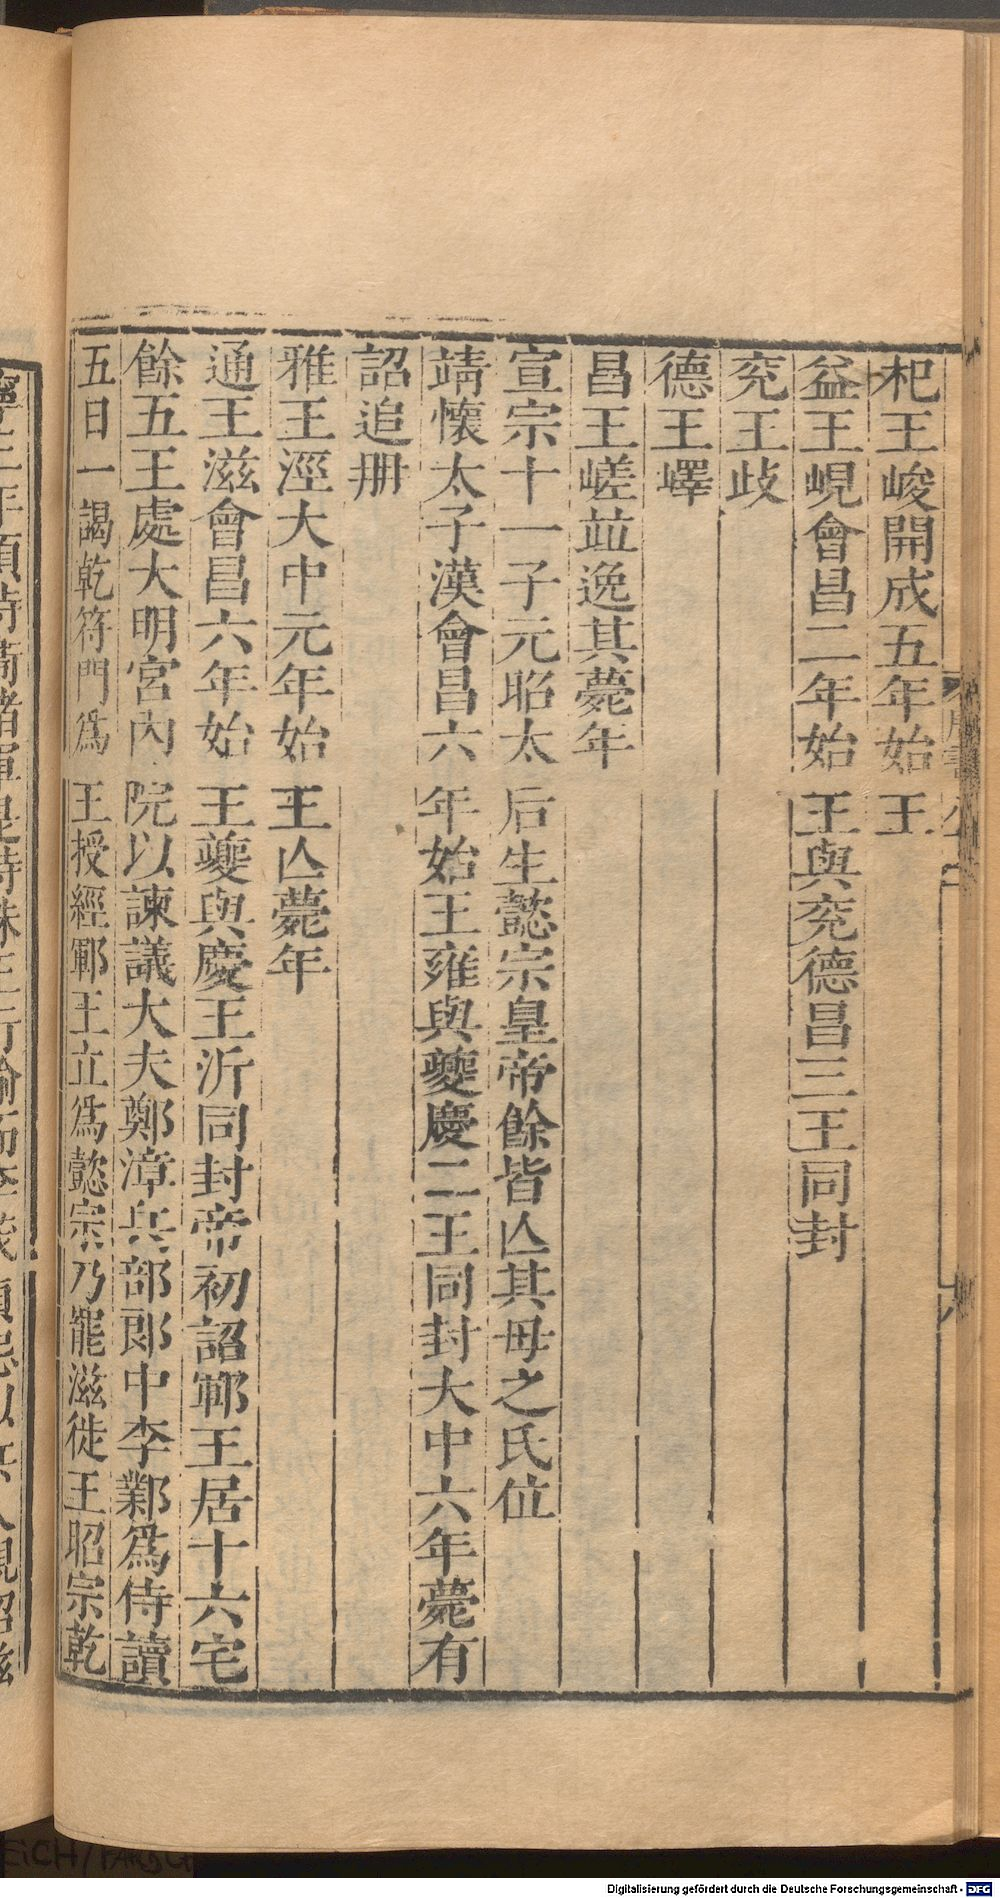 杞王峻開成五年始王
益王峴會昌二年始王與兖德昌三王同封
兖王歧
德王嶧
昌王嵯並逸其薨年
宣宗十一子元昭太后生懿宗皇帝餘皆亾其母之氏位
靖懷太子漢會昌六年始王雍與夔慶二王同封大中六年薨有
詔追册
雅王涇大中元年始王亾薨年
通王滋會昌六年始王夔與慶王沂同封帝初詔鄆王居十六宅
餘五王處大明宮內院以諫議大夫鄭漳兵部郎中李鄴爲侍讀
五日一謁乾符門爲王授經鄆王立爲懿宗乃罷滋徙王昭宗乾
Digitalisierung gefördert durch die Deutsche Forschungsgemeinschaft - DFG